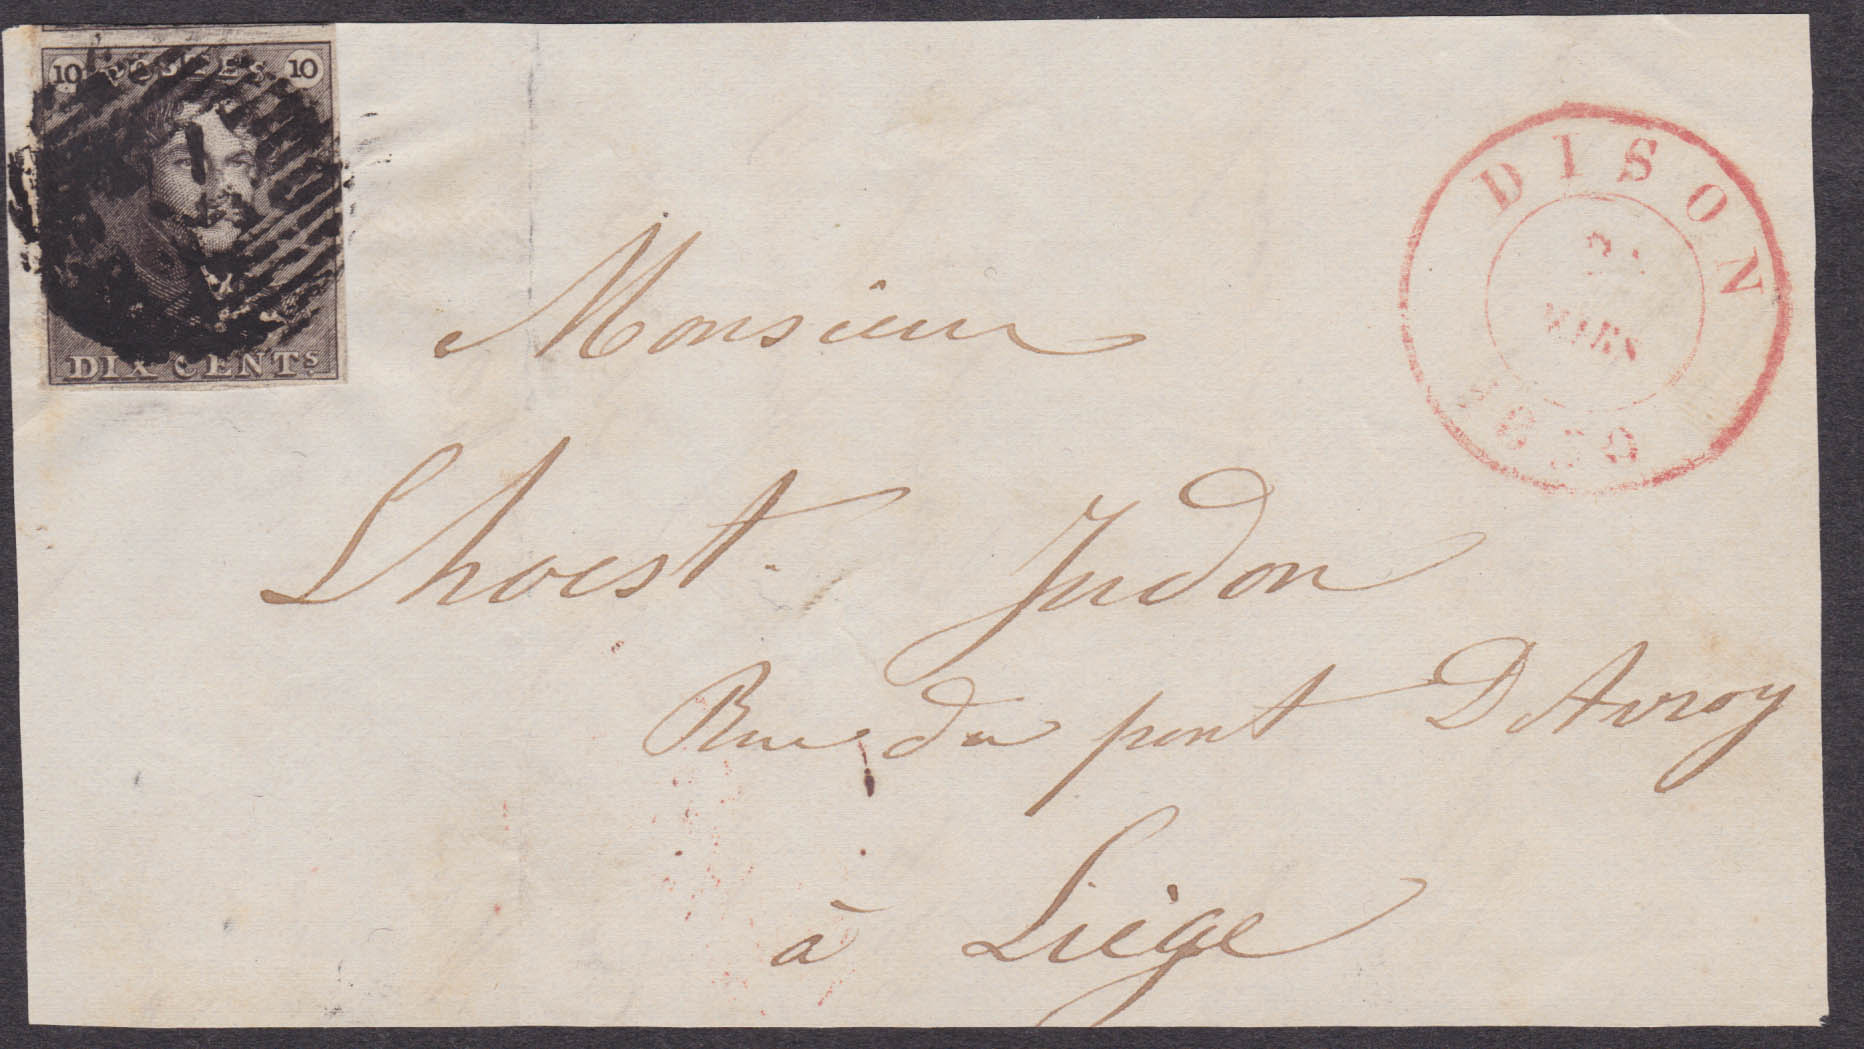 10 POSTES 10
DIX CENTS.
DISON
MARS
1850
Monsieur
Lhoest Judon
Rue du pont D'Avroy
à Liège